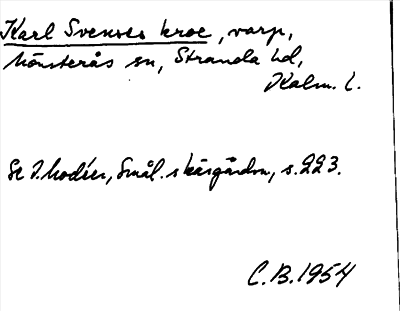 Karl Svenses kroe, varp,
Mönsterås sn, Stranda hd,
Kalm. l.
Se I. Modéer, Smål. skärgårdsn, s. 223.
C.B. 1954